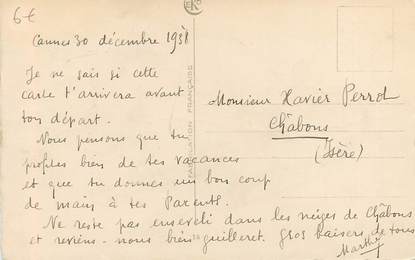 6€
Cannes 30 décembre 1931
Je ne sais si cette
carte t'arrivera avant
ton départ.
Nous pensons que tu
profites bien de tes vacances
et que tu donnes un bon coup
de main à tes Parents.
Ne reste pas enseveli dans les neiges de Châbons
et reviens-nous bien guilleret. Gros baisers de tous
Marthe
Monsieur Xavier Perrot
Châbons
(Isère)
FABRICATION FRANÇAISE